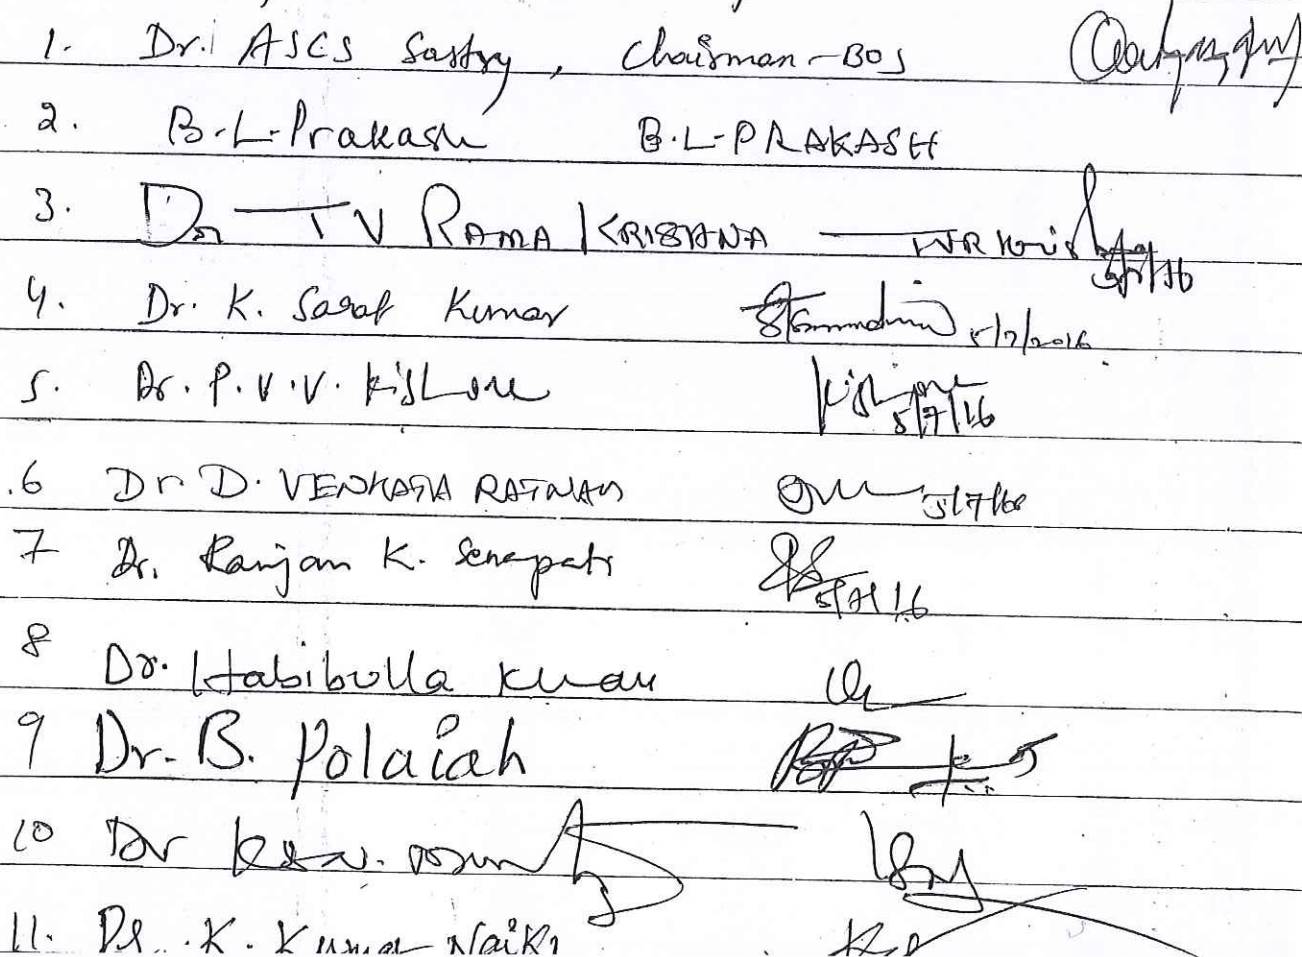 1. Dr. ASCS Sastry, Chairman-BOS
2. B.L-Prakash B.L-PRAKASH
3. Dr TV RAMA KRISHNA TVR Krishna 5/7/16
4. Dr. K. Sarat Kumar 5/7/2016
5. Dr. P.V.V. Kishore Kishore 5/7/16
.6 Dr D. VENKATA RATNAM 5/7/16
7 Dr. Ranjan K. Senapati 5/7/16
8 Dr. Habibulla Khan
9 Dr. B. Polaiah
10 Dr
11. Dr. K. Kumar Naik